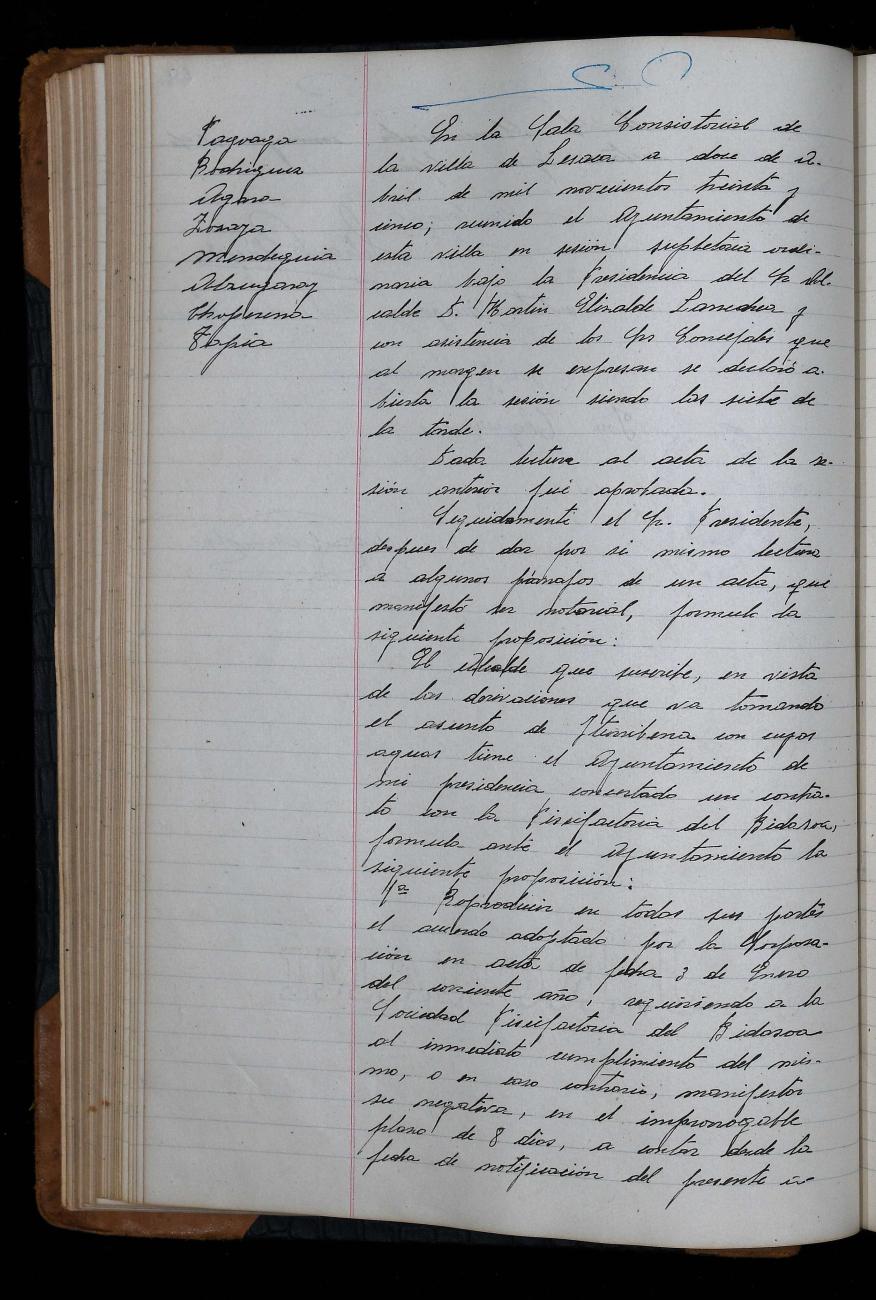 Taguaga
Rodriguez
Agara
Zozaya
Mendeguia
Abrugaray
Choperena
Tapia
En la Sala Consistorial de
la villa de Lesaca a doce de A-
bril de mil novecientos treinta y
cinco; reunido el Ayuntamiento de
esta villa en sesión supletoria ordi-
naria bajo la Presidencia del Sr Al-
calde D. Martin Elizalde Larrechea y
con asistencia de los Srs Concejales que
al margen se expresan se declaró a-
bierta la sesión siendo las siete de
la tarde.
Dada lectura al acta de la se-
sión anterior fué aprobada.
Seguidamente el Sr. Presidente,
despues de dar por si mismo lectura
a algunos párrafos de un acta, que
manifestó ser notarial, formula la
siguiente proposición:
El Alcalde que suscribe, en vista
de las derivaciones que va tomando
el asunto de Iturribena con cuyas
aguas tiene el Ayuntamiento de
mi presidencia concertado un contra-
to con la Piscifactoria del Bidasoa,
formula ante el Ayuntamiento la
siguiente proposición:
1ª Reproducir en todas sus partes
el acuerdo adoptado por la Corpora-
ción en acta de fecha 3 de Enero
del corriente año, requiriendo a la
Sociedad Piscifactoria del Bidasoa
al inmediato cumplimiento del mis-
mo, o en caso contrario, manifestar
su negativa, en el improrogable
plazo de 8 dias, a contar desde la
fecha de notificación del presente a-